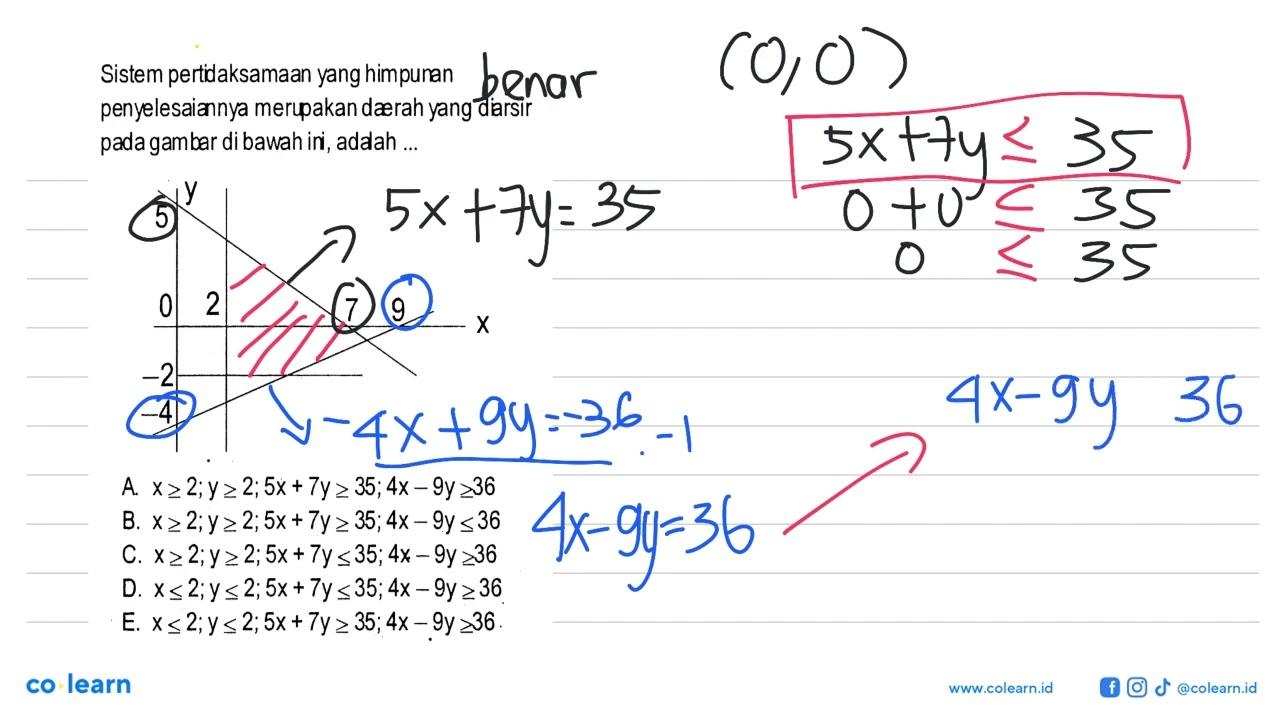 Sistem pertidaksamaan yang himpunan
penyelesaiannya merupakan daerah yang diarsir
pada gambar di bawah ini, adalah ...
benar
(0,0)
5x+7y ≤ 35
0+0 ≤ 35
0 ≤ 35
y
5
5x+7y=35
0 2 7 9 x
−2
−4
-4x+9y=-36 . -1
4x-9y 36
4x-9y=36
A. x ≥ 2; y ≥ 2; 5x + 7y ≥ 35; 4x – 9y ≥36
B. x ≥ 2; y ≥ 2; 5x + 7y ≥ 35; 4x – 9y ≤ 36
C. x ≥ 2; y ≥ 2; 5x + 7y ≤ 35; 4x – 9y ≥36
D. x ≤ 2; y ≤ 2; 5x + 7y ≤ 35; 4x – 9y ≥ 36
E. x ≤ 2; y ≤ 2; 5x + 7y ≥ 35; 4x – 9y ≥36
co learn
www.colearn.id
@colearn.id